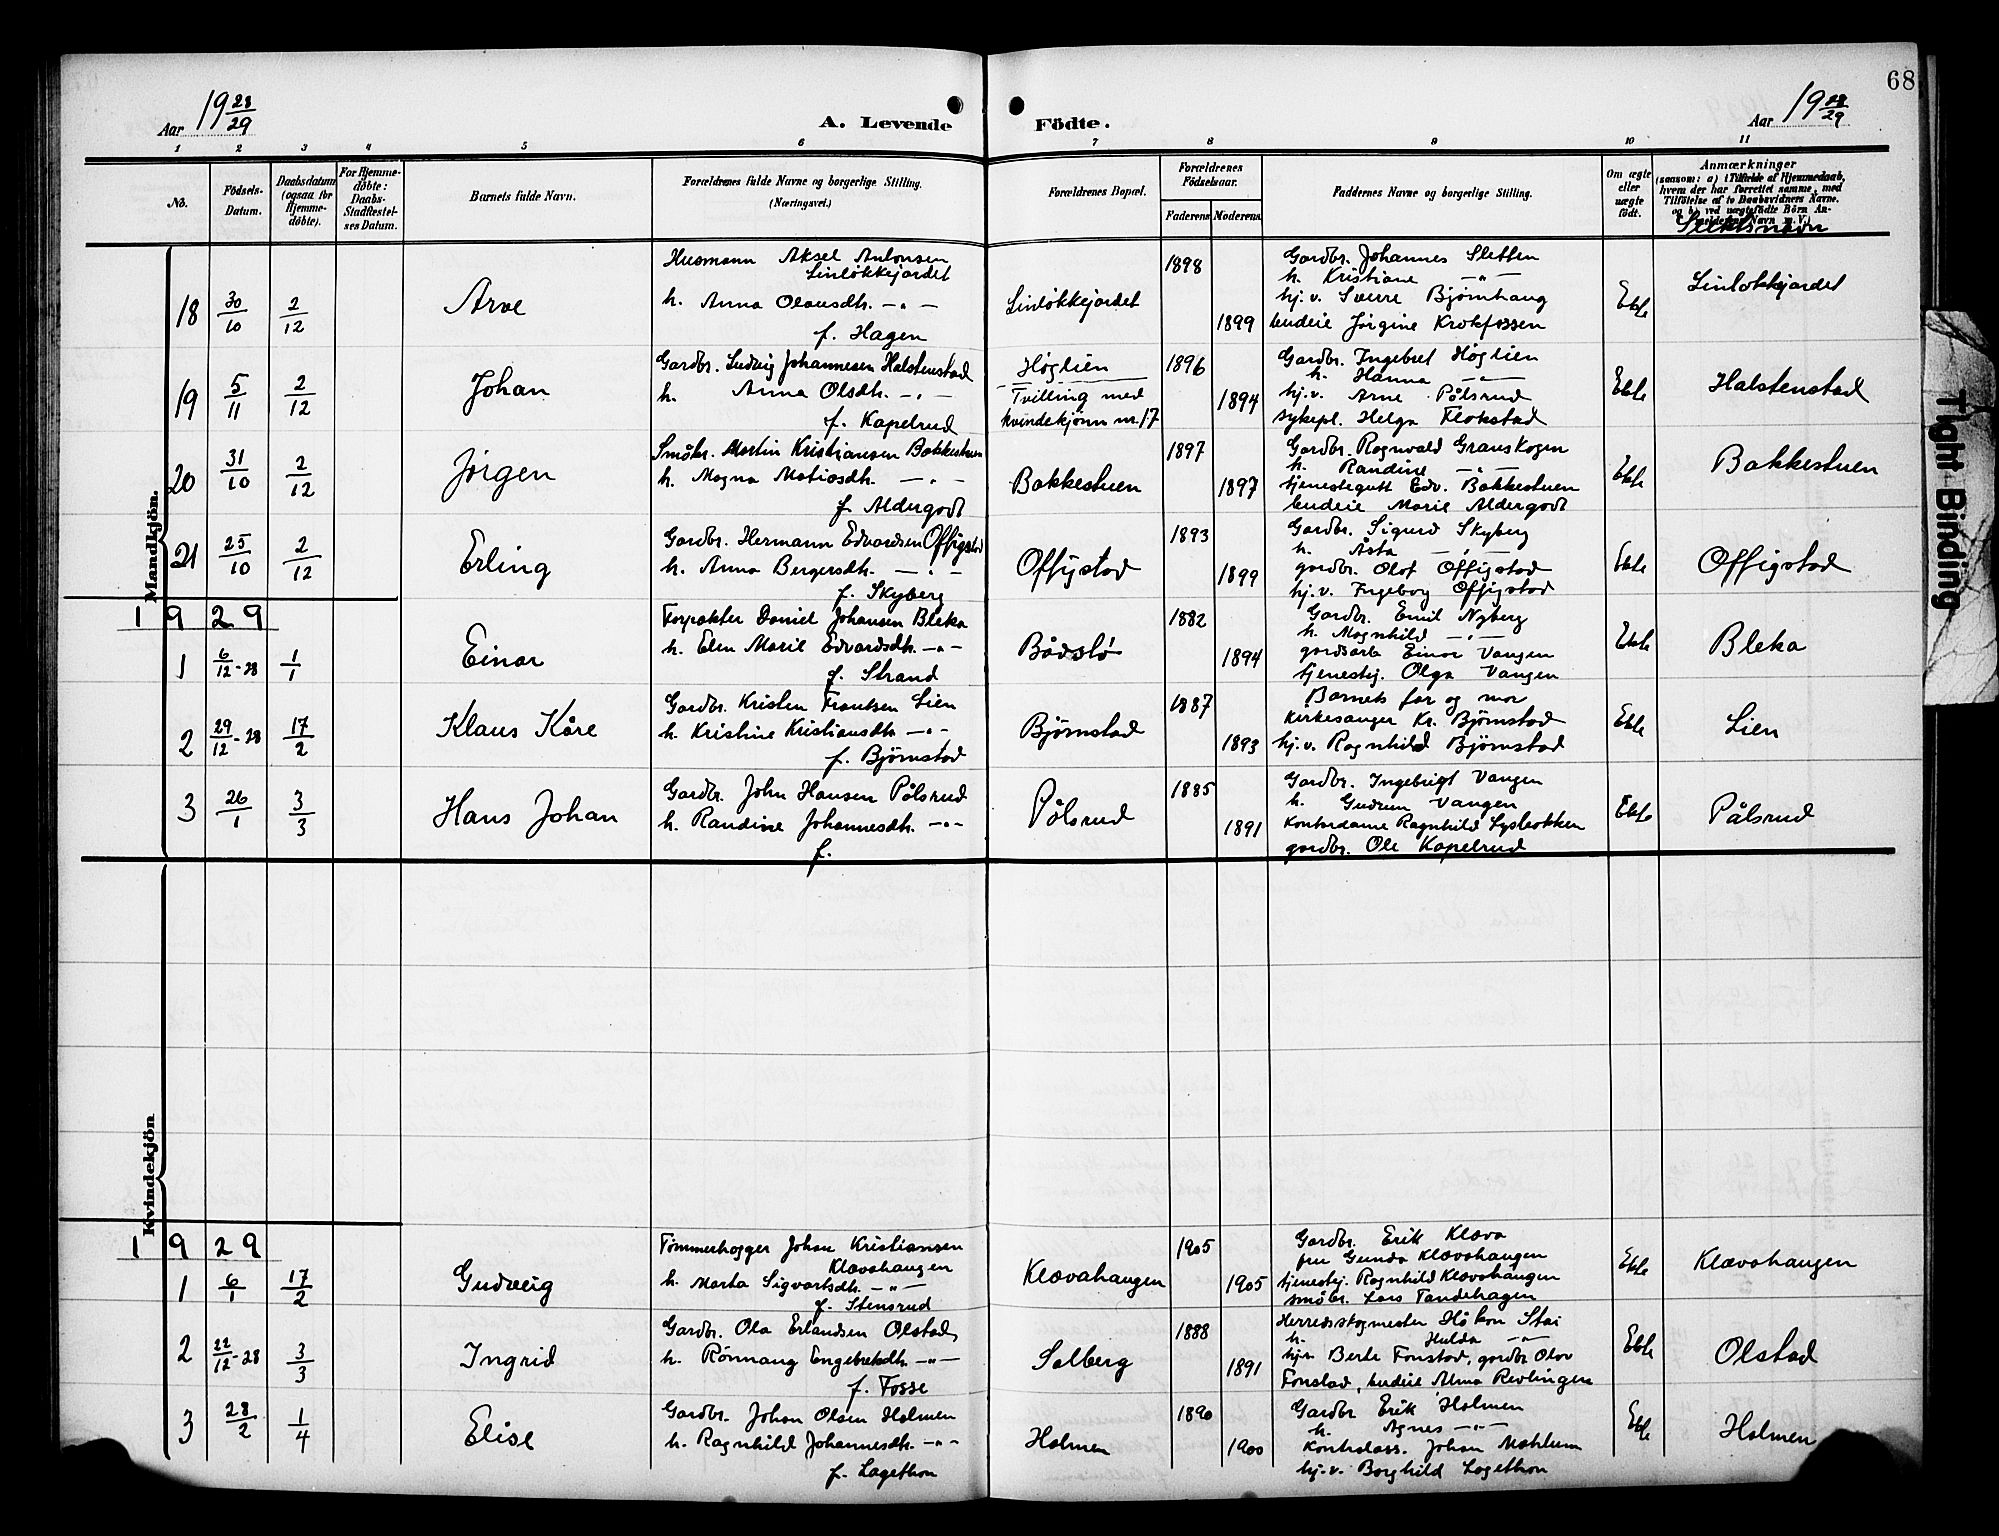 68
Aar 19 28/29
A. Levende Födte.
Aar 19 28/29
1 2 3 4 5 6 7 8 9 10 11
No.
Födsels-Datum.
Daabsdatum (ogsaa for Hjemme-döbte).
For Hjemme-döbte: Daabs-Stadfæstelses Datum.
Barnets fulde Navn.
Forældrenes fulde Navne og borgerlige Stilling.
(Næringsvei.)
Forældrenes Bopæl.
Forældrenes Födselsaar.
Faderens Moderens
Faddernes Navne og borgerlige Stilling.
Om ægte eller uægte födt.
Anmærkninger
(saasom: a) i Tilfælde af Hjemmedaab,
hvem der har forrettet samme, med
Tilföielse af to Daabsvidners Navne.
og b) ved uægtefödte Börn Anmelderens Navn m. V.)
Slektsnavn
Mandkjön.
18 30/10 2/12 Arve
Husmann Aksel Antonsen
Linløkkjordet
h. Anna Olausdh. -"-
f. Hagen
Linløkkjordet
1898
1899
Gardbr. Johannes Sletten
h. Kristiane -"-
hj.v. Sverre Bjørnhaug
budeie Jørgine Krokfossen
Ekte
Linløkkjordet
19 5/11 2/12 Johan
Gardbr. Ludvig Johannesen Halstenstad
h. Anna Olsdh. -"-
f. Kapelrud
Høglien
Tvilling med
kvindekjønn nr. 17
1896
1894
Gardbr. Ingebret Høglien
h. Hanna -"-
hj.v. Arne Pålsrud
sykepl. Helga Flokstad
Ekte
Halstenstad
20 31/10 2/12 Jørgen
Småbr. Martin Kristiansen Bakkestuen
h. Magna Matiasdh. -"-
f. Aldergodt
Bakkestuen
1897
1897
Gardbr. Ragnvald Granskogen
h. Randine -"-
tjenestegutt Edv. Bakkestuen
budeie Marie Aldergodt
Ekte
Bakkestuen
21 25/10 2/12 Erling
Gardbr. Hermann Edvardsen Offigstad
h. Anna Bergersdh. -"-
f. Skyberg
Offigstad
1893
1899
Gardbr. Sigurd Skyberg
h. Åsta -"-
gardbr. Olof Offigstad
hj.v. Ingeborg Offigstad
Ekte
Offigstad
1929
1 6/12-28 1/1 Einar
Forpakter Daniel Johansen Bleka
h. Elen Marie Edvardsdh. -"-
f. Strand
Bådslø
1882
1894
Gardbr. Emil Nyberg
h. Magnhild -"-
gardsarb Einar Vangen
tjenestej. Olga Vangen
Ekte
Bleka
2 29/12-28 17/2 Klaus Kåre
Gardbr. Kristen Frantsen Lien
h. Kristine Kristiansdh. -"-
f. Bjørnstad
Bjørnstad
1887
1893
Barnets far og mor
kirkesanger Kr. Bjørnstad
hj.v. Ragnhild Bjørnstad
Ekte
Lien
3 26/1 3/3 Hans Johan
Gardbr. John Hansen Pålsrud
h. Randine Johannesdh. -"-
f.
Pålsrud
1885
1891
Gardbr. Ingebrigt Vangen
h. Gudrun Vangen
Kontordame Ragnhild Lysbakken
gardbr. Ole Kapelrud
Ekte
Pålsrud
Kvindekjön
1929
1 6/1 17/2 Gudveig
Tømmerhogger Johan Kristiansen
Klævahaugen
h. Marta Sigvartsdh. -"-
f. Stensrud
Klævahaugen
1905
1905
Gardbr. Erik Klæva
fru Gunda Klævahaugen
tjenestej. Ragnhild Klævahaugen
småbr. Lars Tandehagen
Ekte
Klævahaugen
2 22/12-28 3/3 Ingrid
Gardbr. Ola Erlandsen Olstad
h. Rønnaug Engebretsdh. -"-
f. Fosse
Solberg
1888
1891
Herredsskogmester Håkon Stai
h. Hulda -"-
hj.v. Berte Fonstad, gardbr Olav
Fonstad, budeie Alma Revlingen
Ekte
Olstad
3 28/2 1/4 Elise
Gardbr. Johan Olsen Holmen
h. Ragnhild Johannesdh. -"-
f. Lagethon
Holmen
1890
1900
Gardbr Erik Holmen
h. Agnes -"-
Kontrolass. Johan Mæhlum
hj.v. Borghild Lagethon
Ekte
Holmen
Tight Binding